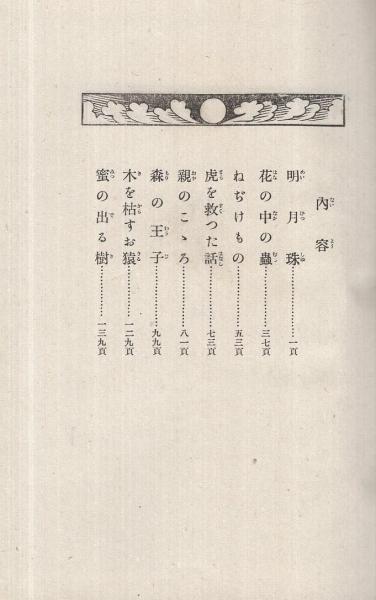 內容
明月珠…………一頁
花の中の蟲…………三七頁
ねぢけもの…………五三頁
虎を救つた話…………七三頁
親のこゝろ…………八一頁
森の王子…………九九頁
木を枯すお猿…………一二九頁
蜜の出る樹…………一三九頁